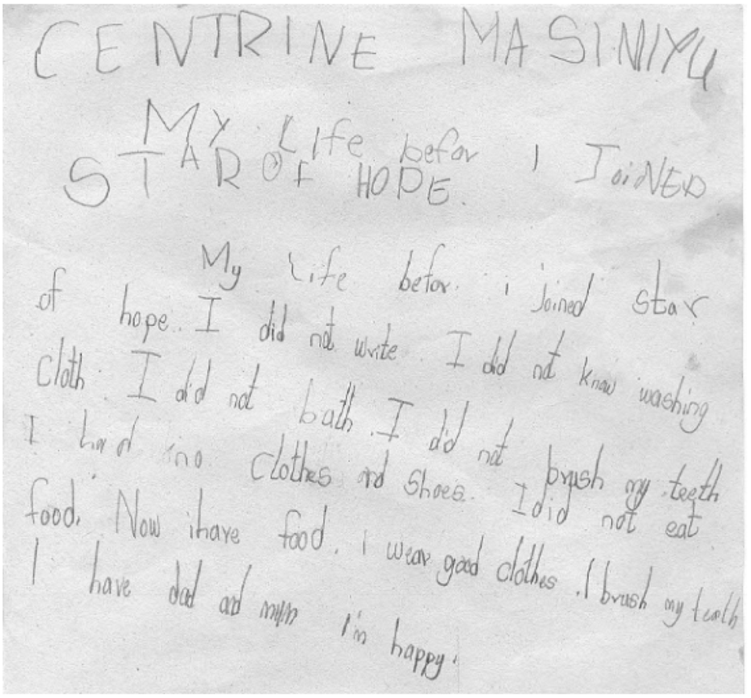 CENTRINE MASINIYU
My Life befor I JoiNED
STAR OF HOPE.
My Life befor. i joined star
of hope. I did not write. I did not know washing
cloth. I did not bath. I did not brush my teeth
I had no clothes and shoes. I did not eat
food. Now i have food. i wear good clothes. I brush my teeth
I have dad and mum I'm happy.